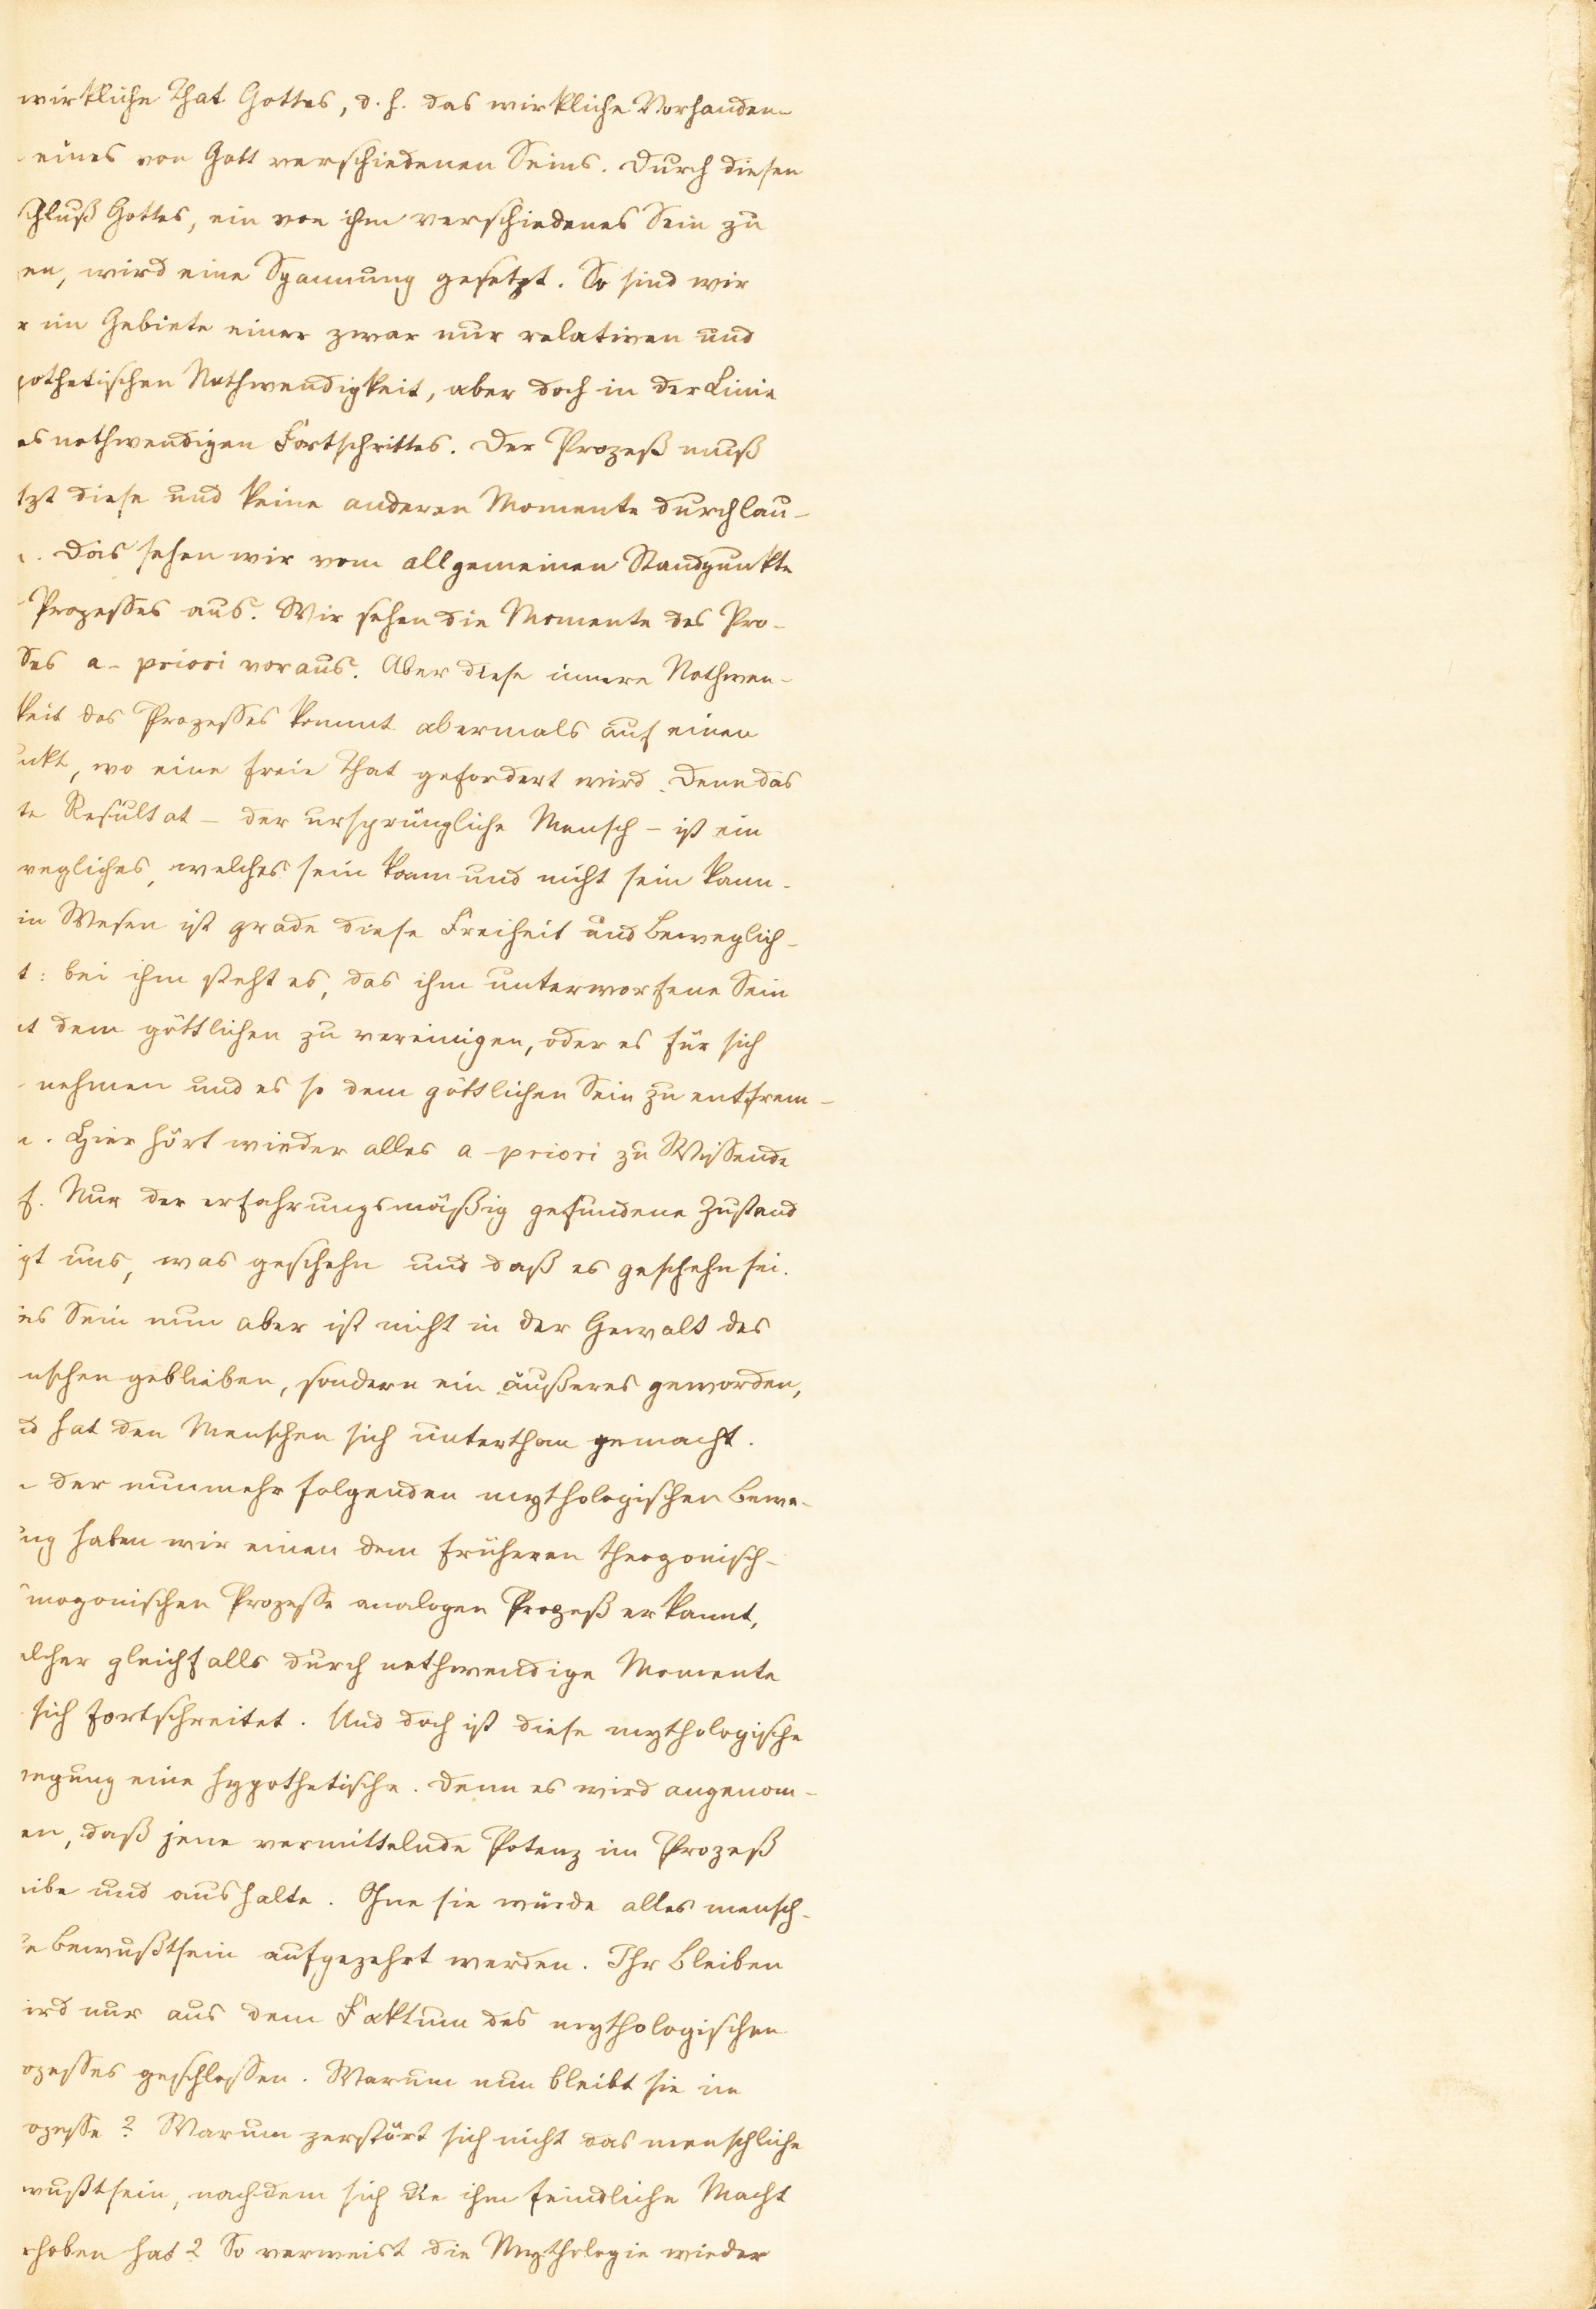 wirkliche That Gottes, d. h. das wirkliche Vorhanden-
eines von Gott verschiedenen Seins. Durch diesen
schluß Gottes, ein von ihm verschiedenes Sein zu
en, wird eine Spannung gesetzt. So sind wir
r im Gebiete einer zwar nur relativen und
pothetischen Nothwendigkeit, aber doch in der Linie
es nothwendigen Fortschrittes. Der Prozeß muß
tzt diese und keine anderen Momente durchlau-
n. Das sehen wir vom allgemeinen Standpunkte
Prozesses aus. Wir sehen die Momente des Pro-
ßes a-priori voraus. Aber diese innere Nothwen-
keit des Prozesses kommt abermals auf einen
unkt, wo eine freie That gefordert wird. Denn das
te Resultat - der ursprüngliche Mensch - ist ein
wegliches, welches sein kann und nicht sein kann.
in Wesen ist grade diese Freiheit und Beweglich-
t: bei ihm steht es, das ihm unterworfene Sein
it dem göttlichen zu vereinigen, oder es für sich
nehmen und es so dem göttlichen Sein zu entfrem-
n. Hier hört wieder alles a-priori zu Wissende
f. Nur der erfahrungsmäßig gefundene Zustand
igt uns, was geschehn und daß es geschehn sei.
es Sein nun aber ist nicht in der Gewalt des
nschen geblieben, sondern ein äußeres geworden,
d hat den Menschen sich unterthan gemacht.
n der nunmehr folgenden mythologischen Bewe-
ung haben wir einen dem früheren theogonisch-
smogonischen Prozesse analogen Prozeß erkannt,
elcher gleichfalls durch nothwendige Momente
sich fortschreitet. Und doch ist diese mythologische
wegung eine hypothetische. Denn es wird angenom-
en, daß jene vermittelnde Potenz im Prozeß
eibe und aushalte. Ohne sie würde alles mensch-
e Bewußtsein aufgezehrt werden. Ihr Bleiben
ird nur aus dem Faktum des mythologischen
ozesses geschlossen. Warum nun bleibt sie im
ozesse? Warum zerstört sich nicht das menschliche
wußtsein, nachdem sich die ihm feindliche Macht
rhoben hat? So verweist die Mythologie wieder